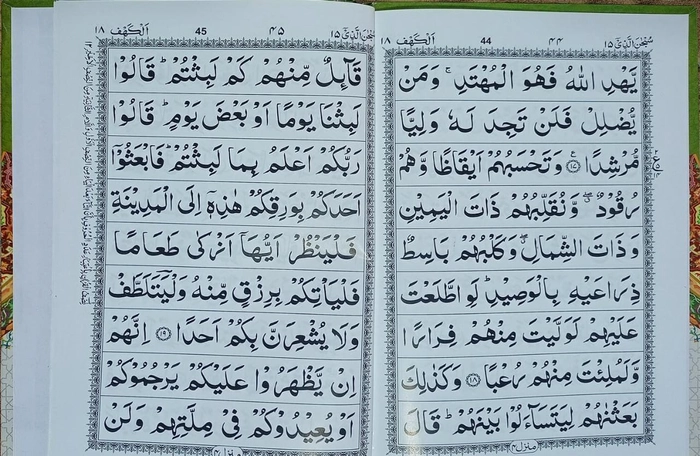 سُبْحٰنَ الَّذِيْٓ ١٥
٤٤
44
اَلْكَهْف ١٨
يَّهْدِ اللّٰهُ فَهُوَ الْمُهْتَدِ ۚ وَمَنْ
يُّضْلِلْ فَلَنْ تَجِدَ لَهٗ وَلِيًّا
مُّرْشِدًا ۝١٧ وَتَحْسَبُهُمْ اَيْقَاظًا وَّهُمْ
رُقُوْدٌ ۖ وَّنُقَلِّبُهُمْ ذَاتَ الْيَمِيْنِ
وَذَاتَ الشِّمَالِ ۖ وَكَلْبُهُمْ بَاسِطٌ
ذِرَاعَيْهِ بِالْوَصِيْدِ ؕ لَوِ اطَّلَعْتَ
عَلَيْهِمْ لَوَلَّيْتَ مِنْهُمْ فِرَارًا
وَّلَمُلِئْتَ مِنْهُمْ رُعْبًا ۝١٨ وَكَذٰلِكَ
بَعَثْنٰهُمْ لِيَتَسَآءَلُوْا بَيْنَهُمْ ؕ قَالَ
منزل ٤
سُبْحٰنَ الَّذِيْٓ ١٥
٤٥
45
اَلْكَهْف ١٨
قَآئِلٌ مِّنْهُمْ كَمْ لَبِثْتُمْ ؕ قَالُوْا
لَبِثْنَا يَوْمًا اَوْ بَعْضَ يَوْمٍ ؕ قَالُوْا
رَبُّكُمْ اَعْلَمُ بِمَا لَبِثْتُمْ ؕ فَابْعَثُوْٓا
اَحَدَكُمْ بِوَرِقِكُمْ هٰذِهٖٓ اِلَى الْمَدِيْنَةِ
فَلْيَنْظُرْ اَيُّهَآ اَزْكٰى طَعَامًا
فَلْيَاْتِكُمْ بِرِزْقٍ مِّنْهُ وَلْيَتَلَطَّفْ
وَلَا يُشْعِرَنَّ بِكُمْ اَحَدًا ۝١٩ اِنَّهُمْ
اِنْ يَّظْهَرُوْا عَلَيْكُمْ يَرْجُمُوْكُمْ
اَوْ يُعِيْدُوْكُمْ فِيْ مِلَّتِهِمْ وَلَنْ
منزل ٤